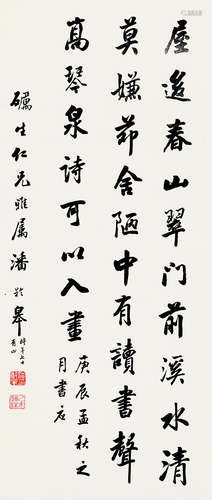 屋送春山翠門前溪水清
莫嫌茆舍陋中有讀書聲
高琴泉詩可以入畫
庚辰孟秋之
月書於
礪生仁兄雅属潘齡皋
時年七十